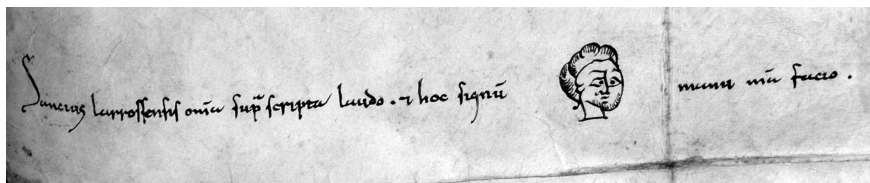 Sancius larrossensis om̄a sup̃ scripta laudo. ⁊ hoc signū manu mā facio.